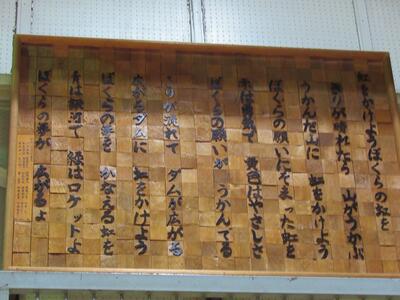 虹をかけようぼくらの虹を
きりが晴れたら 山がうかぶ
うかんだ山に 虹をかけよう
ぼくらの願いにそまった虹を
赤は勇気で 黄色はやさしさ
ぼくらの願いが うかんでる
きりが流れて ダムが広がる
広がるダムに 虹をかけよう
ぼくらの夢を かなえる虹を
青は銀河で 緑はロケットよ
ぼくらの夢が 広がるよ